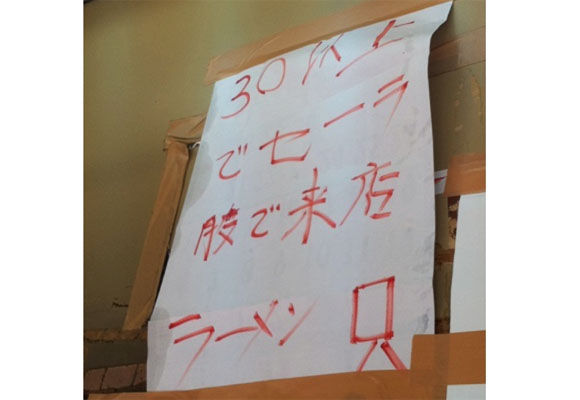 30以上
でセーラ
服で来店
ラーメン 只